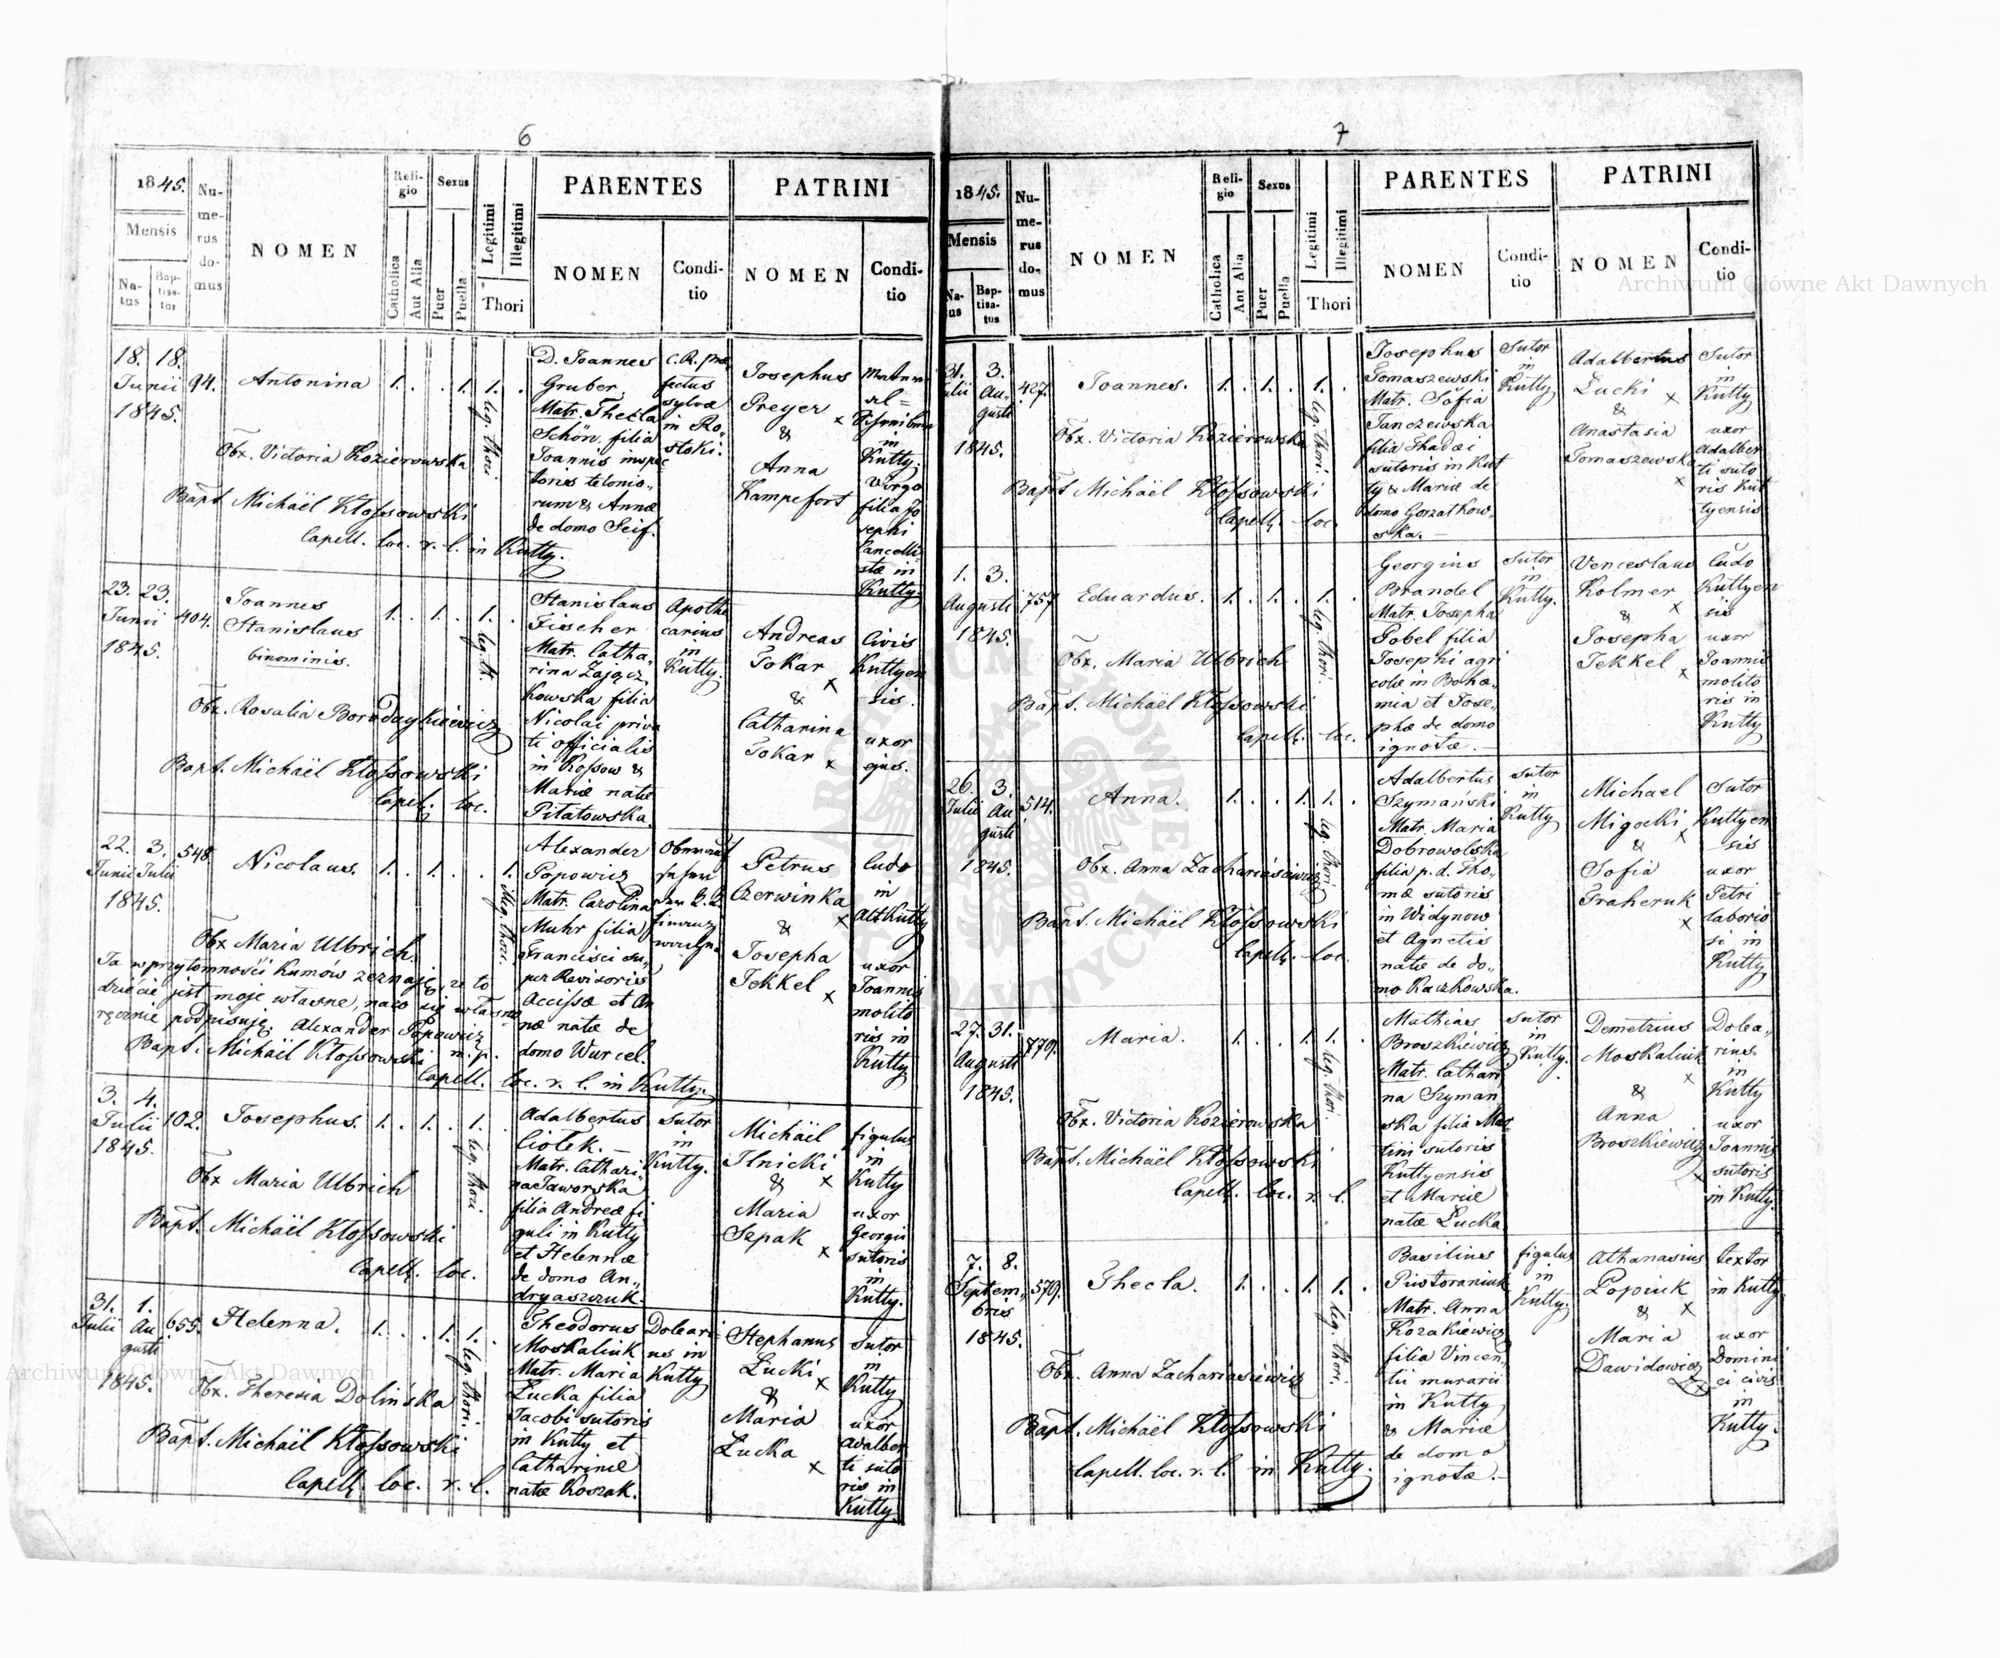 6
1845.
Mensis
Natus
Baptisatus
Numerus domus
NOMEN
Religio
Catholica
Aut Alia
Sexus
Puer
Puella
Legitimi
Illegitimi
Thori
PARENTES
NOMEN
Conditio
PATRINI
NOMEN
Conditio
18. 18.
Junii
1845.
94.
Antonina
1. . . 1. 1. .
leg. thori
Obx. Victoria Kozierowska
Bapt. Michaël Kłossowski
Capell. loc. r. l. in Kutty.
D. Joannes
Gruber
Matr. Thecla
Schön, filia
Joannis inspec
toris telonio„
rum & Annæ
de domo Seif.
C. R. præ
fectus
sylvæ
in Ro„
stoki.
Josephus
Preyer x
&
Anna
Kampefort
in
Kutty.
virgo
filia Jo
sephi
Cancelli
stæ in
Kutty.
23. 23.
Junii
1845.
404.
Joannes
Stanislaus
binominis.
1. . 1. . 1. .
leg. th.
Obx. Rosalia
Bapt. Michaël Kłossowski
Capell. loc.
Stanislaus
Fischer
Matr. Catha„
rina Zającz
kowska filia
Nicolai priva
ti officialis
in Kossow &
Mariæ natæ
Pitatowska.
Apothe
carius
in
Kutty.
Andreas
Tokar x
&
Catharina
Tokar x
Civis
Kuttyen
sis.
uxor
ejus.
22. 3.
Junii Julii
1845.
548.
Nicolaus.
1. . 1. . . 1.
illeg. thori.
Obx Maria Ulbrich.
Ja w przytomności Kumów zeznaję, że to
dziecię jest moje własne, na co się własno
ręcznie podpisuję. Alexander Popowicz
m. p.
Bapt. Michaël Kłossowski
Capell. loc. r. l. in Kutty.
Alexander
Popowicz
Matr. Carolina
Muhr filia
Francisci su„
per Revisoris
Accissæ et An
næ natæ de
domo Wurcel.
Petrus
Czerwinka x
&
Josepha
Jekkel x
Cudo
in
Altkutty
uxor
Joannis
molito
ris in
Kutty
3. 4.
Julii
1845.
102.
Josephus.
1. . 1. . 1.
leg. thori
Obx Maria Ulbrich
Bapt. Michaël Kłossowski
Capell. loc.
Adalbertus
Ciołek.
Matr. Cathari„
na Jaworska
filia Andreæ fi
guli in Kutty
et Helennæ
de domo An„
dryaszczuk.
Sutor
in
Kutty.
Michäel
Ilnicki x
&
Maria
Szpak x
figulus
in
Kutty
uxor
Georgii
sutoris
in
Kutty.
31. 1.
Julii Au
gusti
1845.
655.
Helenna.
1. . . 1. 1. .
leg. thori.
Obx. Theresia Dolińska
Bapt. Michaël Kłossowski
Capell. loc. r. l.
Theodorus
Moskaliuk
Matr. Maria
Łucka filia
Jacobi sutoris
in Kutty et
Catharinæ
natæ Koszak.
Doleari
us in
Kutty
Stephanus
Łucki x
&
Maria
Łucka x
Sutor
in
Kutty
uxor
Adalber
ti suto
ris in
Kutty.
7
1845.
Mensis
Natus
Baptisatus
Numerus domus
NOMEN
Religio
Catholica
Aut Alia
Sexus
Puer
Puella
Legitimi
Illegitimi
Thori
PARENTES
NOMEN
Conditio
PATRINI
NOMEN
Conditio
31. 3.
Julii Au
gusti
1845.
427.
Joannes.
1. . 1. . 1. .
leg. thori.
Obx. Victoria Kozierowska
Bapt Michaël Kłossowski
Capell. loc.
Josephus
Tomaszewski
Matr. Sofia
Janczewska
filia Thadæi
sutoris in Kut
ty & Mariæ de
domo Gorzatkow„
ska.
Sutor
in
Kutty
Adalbertus
Łucki x
&
Anastasia
Tomaszewska x
Sutor
in
Kutty
uxor
Adalber
ti suto
ris Kut
tyensis
1. 3.
Augusti
1845.
757
Eduardus.
1. . 1. . 1. .
leg. thori.
Obx. Maria Ulbrich
Bapt. Michaël Kłossowski
Capell. loc.
Georgius
Brandel
Matr. Josepha
Gobel filia
Josephi agri
colæ in Bohæ„
mia et Jose„
phæ de domo
ignotæ.
Sutor
in
Kutty.
Venceslaus
Kolmer x
&
Josepha
Jekkel x
Cudo
Kuttyen
sis
uxor
Joannis
molito
ris in
Kutty
26. 3.
Julii Au
gusti
1845.
514.
Anna.
1. . . 1. 1. .
leg. thori
Obx. Anna Zachariasiewicz
Bapt. Michaël Kłossowski
Capell. loc.
Adalbertus
Szymański
Matr. Maria
Dobrowolska
filia p. d. Tho„
mæ sutoris
in Widynow
et Agnetis
natæ de do„
mo Kaczkowska.
Sutor
in
Kutty
Michael
Migocki x
&
Sofia
Fraheruk x
Sutor
Kuttyen
sis
uxor
Petri
laborio
si in
Kutty
27. 31.
Augusti
1845.
779.
Maria.
1. . . 1. 1. .
leg. thori.
Obx. Victoria Kozierowska
Bapt. Michaël Kłossowski
Capell. loc. r. l.
Mathias
Broszkiewicz
Matr. Cathari
na Szyman
ska filia Mar
tini sutoris
Kuttyensis
et Mariæ
natæ Łucka
Sutor
in
Kutty.
Demetrius
Moskaliuk x
&
Anna
Broszkiewicz x
Dolea„
rius.
in
Kutty
uxor
Joannis
sutoris
in Kutty.
7. 8.
Septem„
bris
1845.
579.
Thecla.
1. . . 1. 1. .
leg. thori.
Obx. Anna Zachariasiewicz
Bapt. Michaël Kłossowski
Capell. loc. r. l. in Kutty.
Basilius
Pistoraniuk
Matr. Anna
Kozakiewicz
filia Vincen„
tii murarii
in Kutty
& Mariæ
de domo
ignotæ.
figulus
in
Kutty.
Athanasius
Popiuk x
&
Maria
Dawidowicz x
textor
in Kutty
uxor
Domini
ci civis
in
Kutty.
Archiwum Główne Akt Dawnych
Archiwum Główne Akt Dawnych